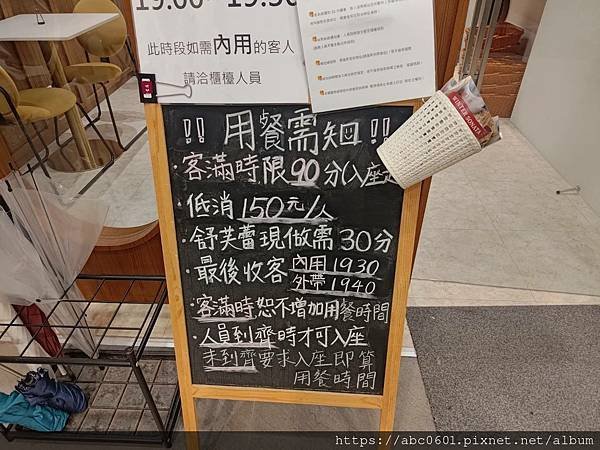 19:00~19:30
此時段如需內用的客人
請洽櫃檯人員
!! 用餐需知 !!
·客滿時限90分(入座
·低消150元/人
·舒芙蕾現做需30分
·最後收客 內用 19:30
外帶 19:40
·客滿時恕不增加用餐時間
·人員到齊時才可入座
未到齊要求入座即算
用餐時間
WINTER SONATA
https://abc0601.pixnet.net/album